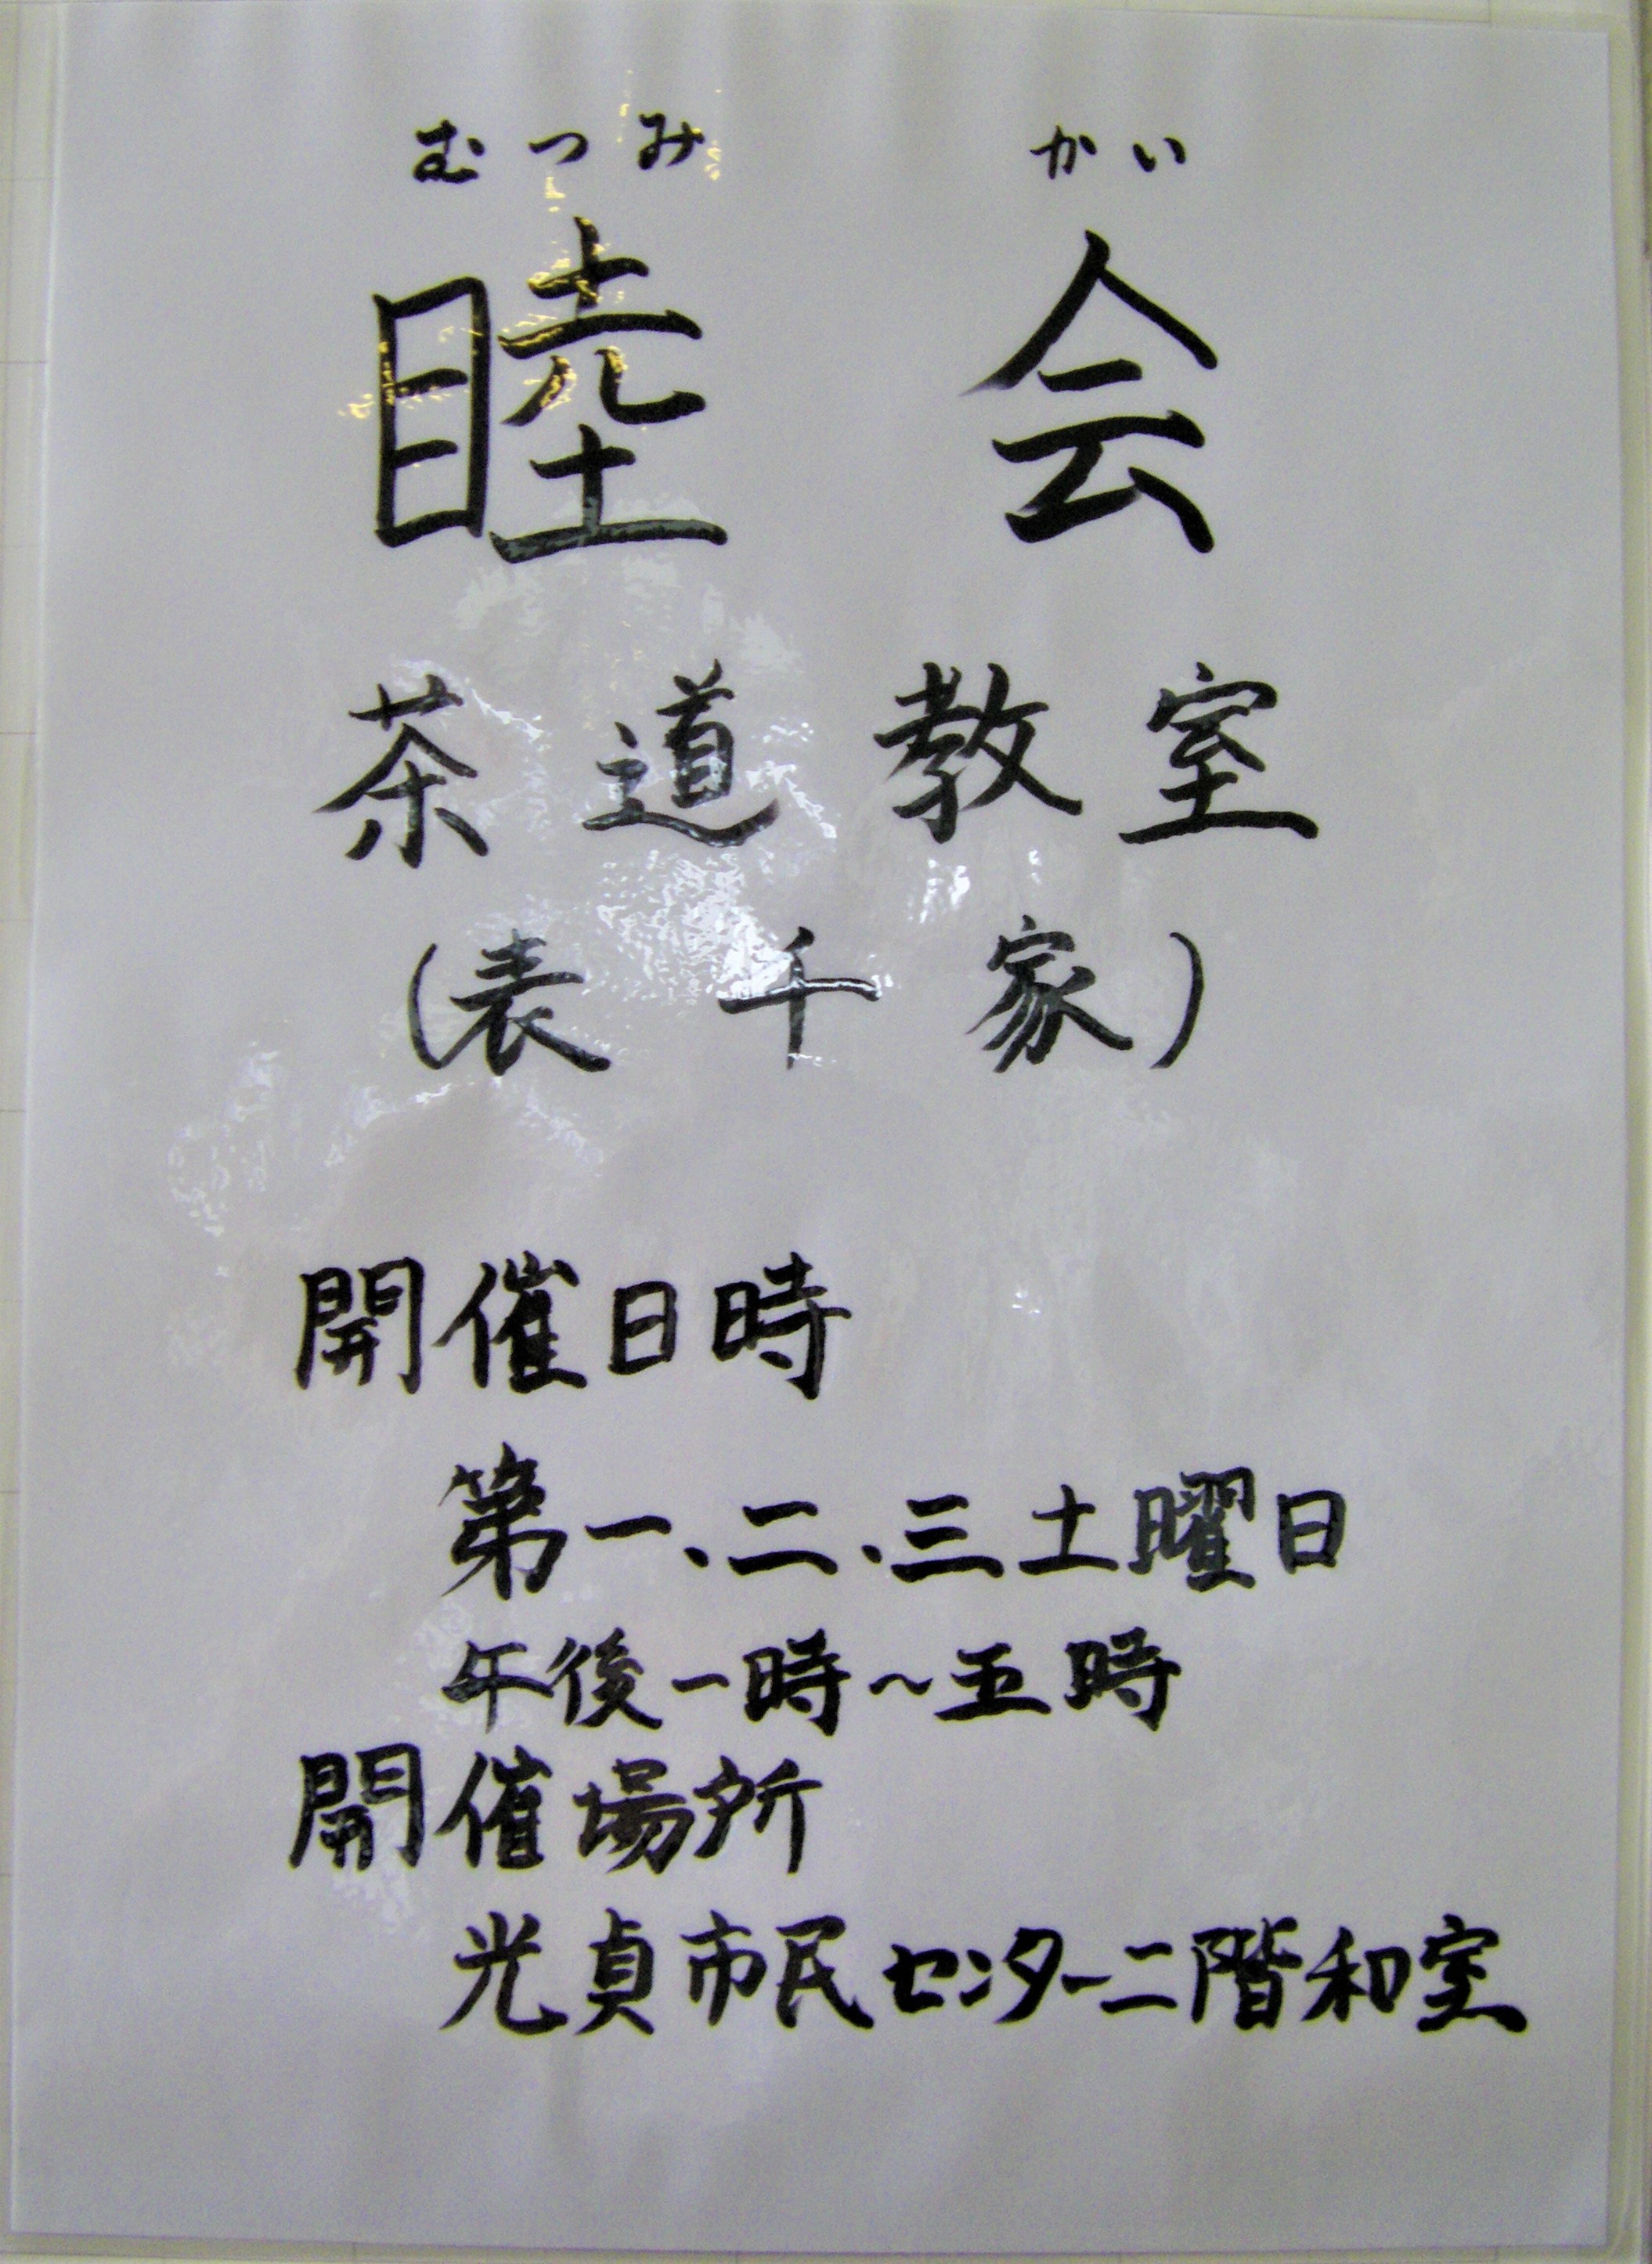 むつみ かい
睦会
茶道教室
(表千家)
開催日時
第一、二、三土曜日
午後一時~五時
開催場所
光貞市民センター二階和室